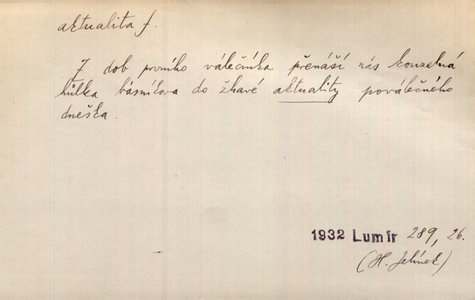 aktualita f.
Z dob prvního válečníka přenáší nás kouzelná
hůlka básníkova do žhavé aktuality poválečného
dneška.
1932 Lumír 289, 26.
(H. Jelínek)